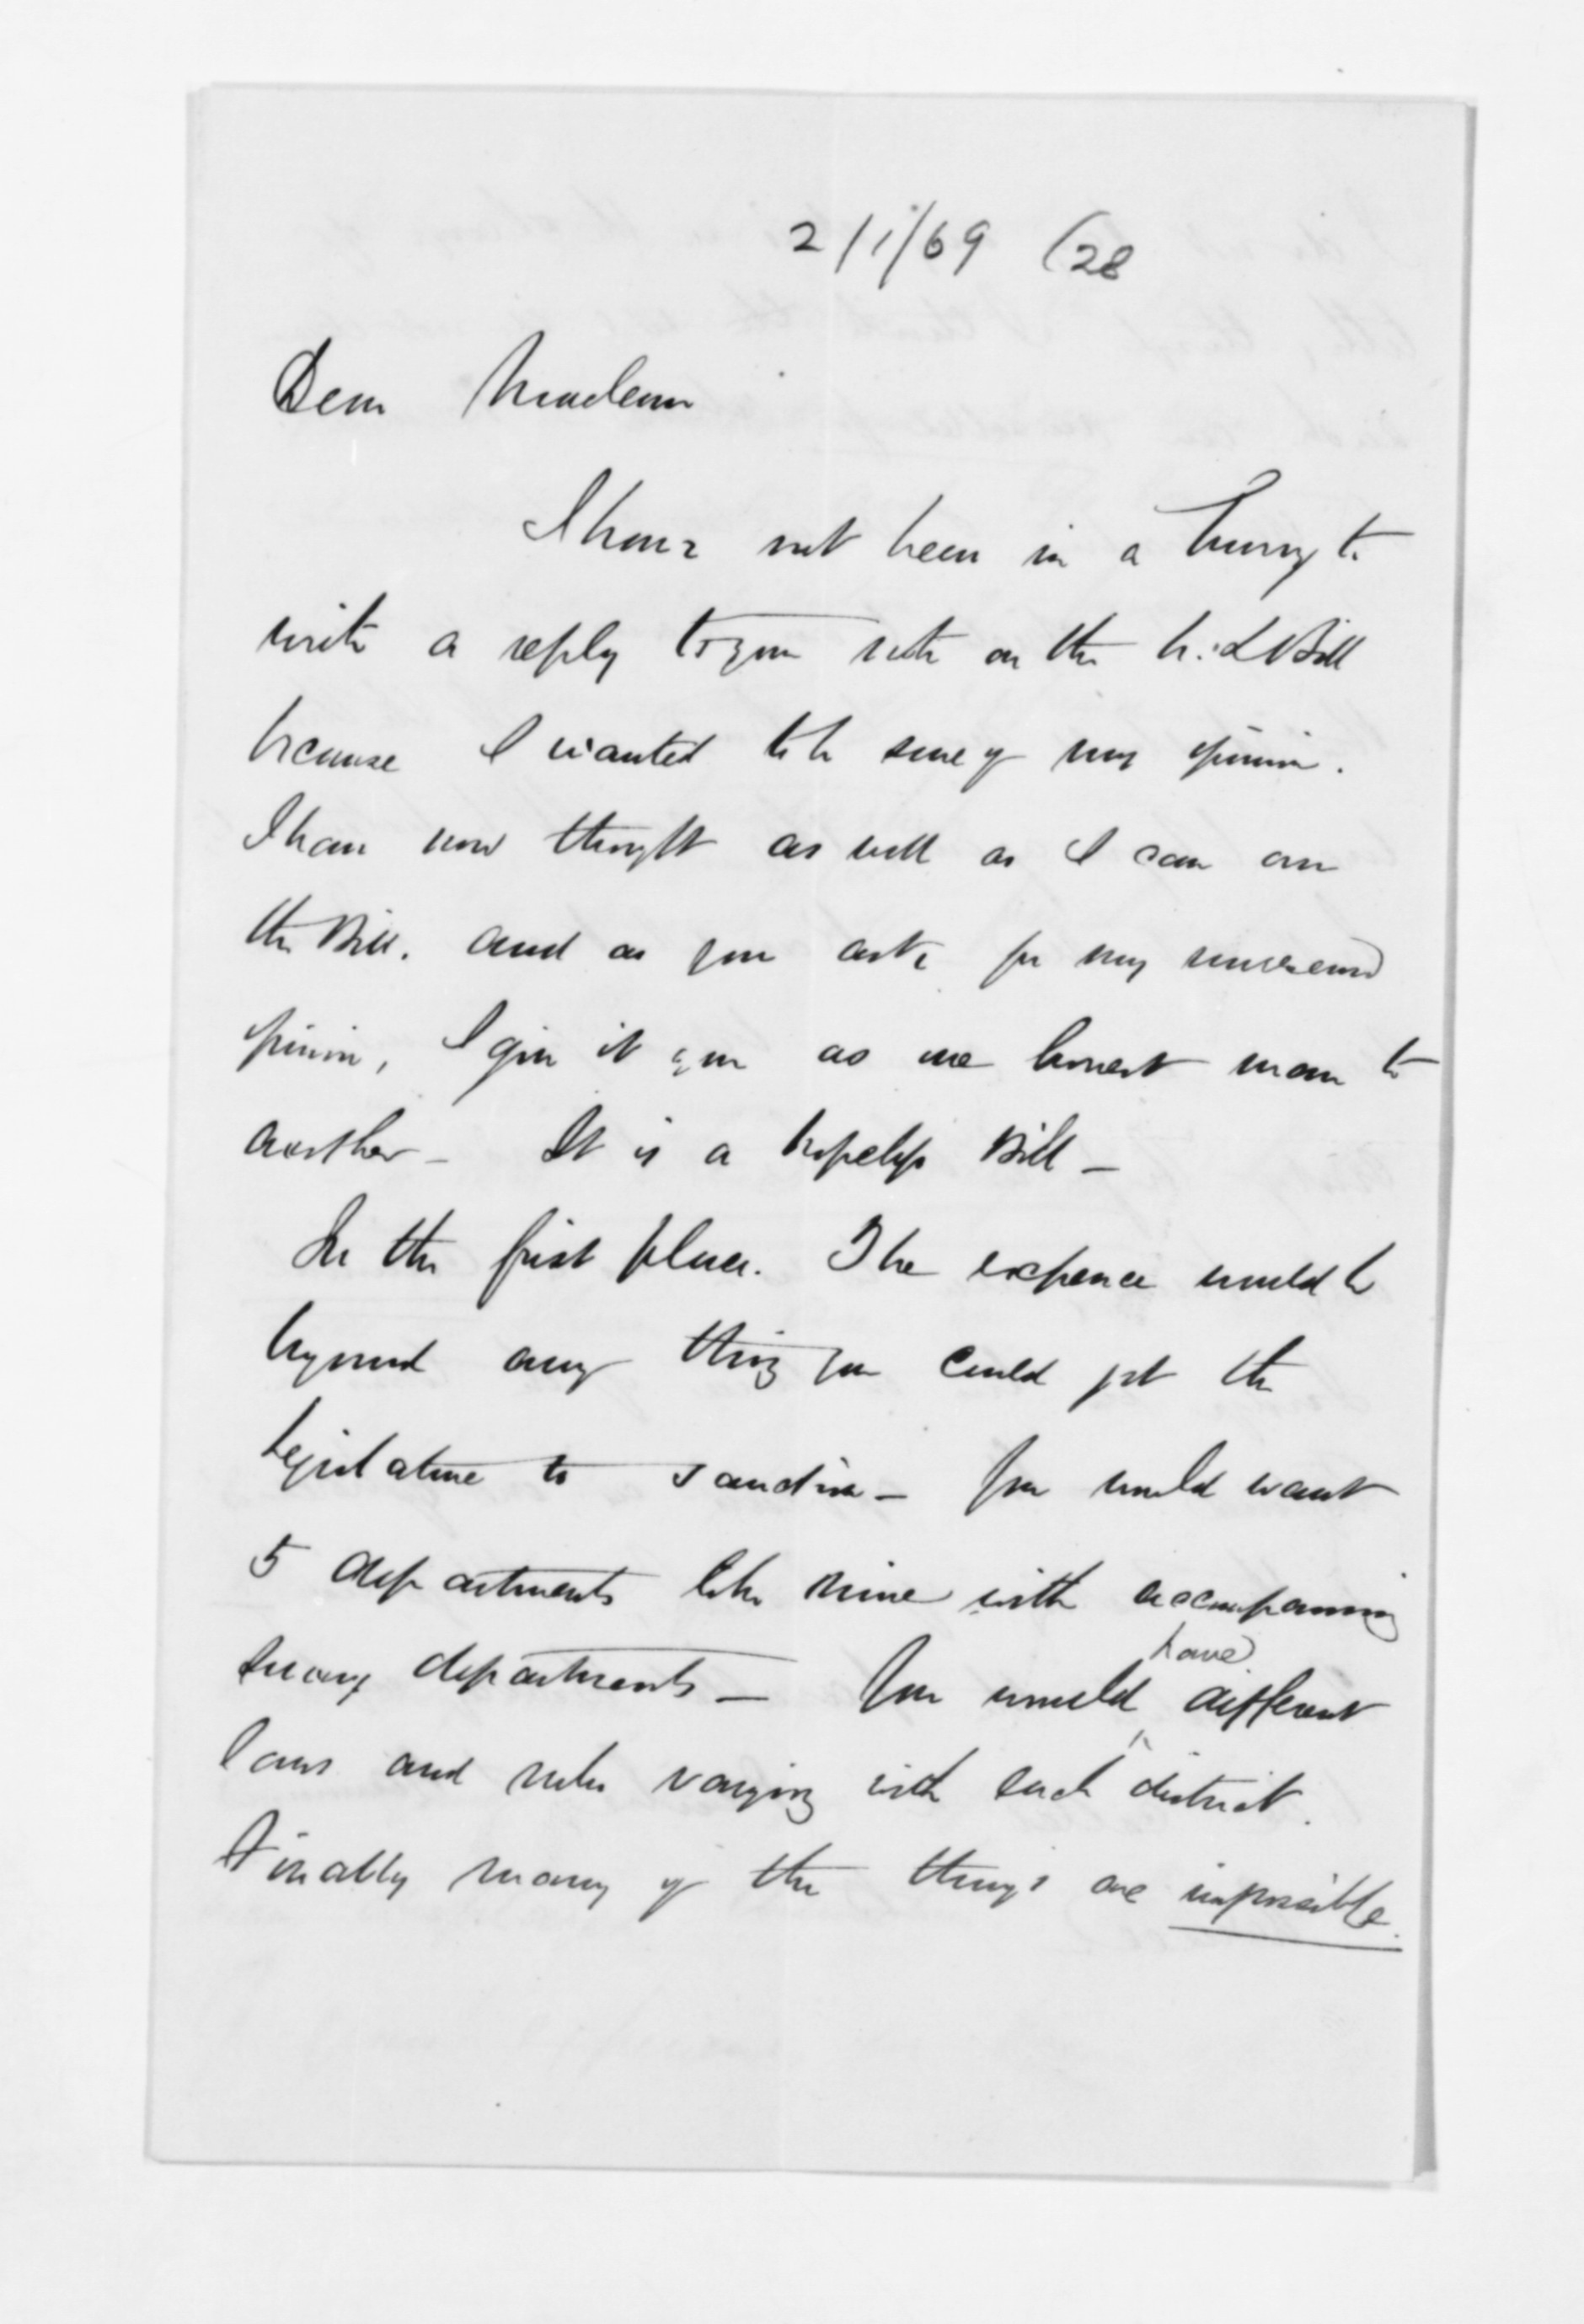 2/1/69 (28
Dear McLean
I have not been in a hurry to
write a reply to your note on the N. L Bill
because I wanted to be sure of my opinion.
I have now thought as well as I can on
the Bill. and as you ask for my
opinion, I give it you as one honest man to
another - It is a hopeless Bill -
In the first place. The expence would be
beyond any thing you could get the
Legislature to sanction - You would want
5 departments like mine with accompanying
Survey departments - You would have different
laws and rules varying with each district.
Finally many of the things are impossible.